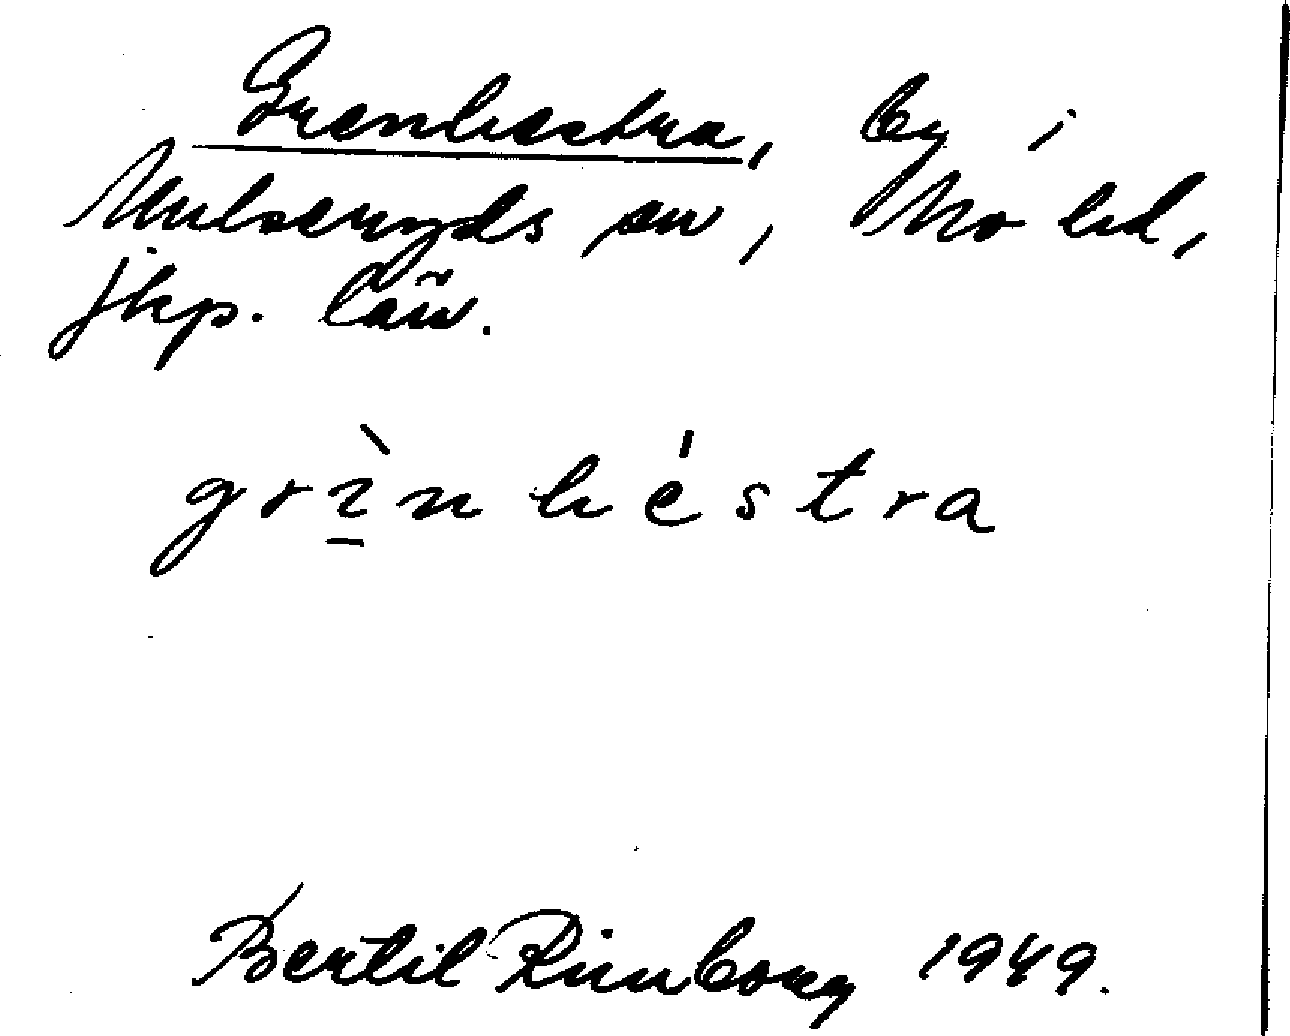 Grenhestra, by i
Mulseryds sn, Mo hd,
Jkp. län.
grìnhéstra
Bertil Rimborg 1949.